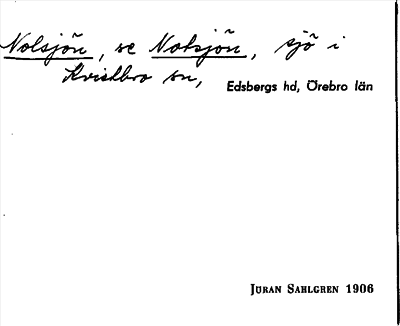 Nolsjön, se Notsjön, sjö i
Kvistbro sn,
Edsbergs hd, Örebro län
Jöran Sahlgren 1906